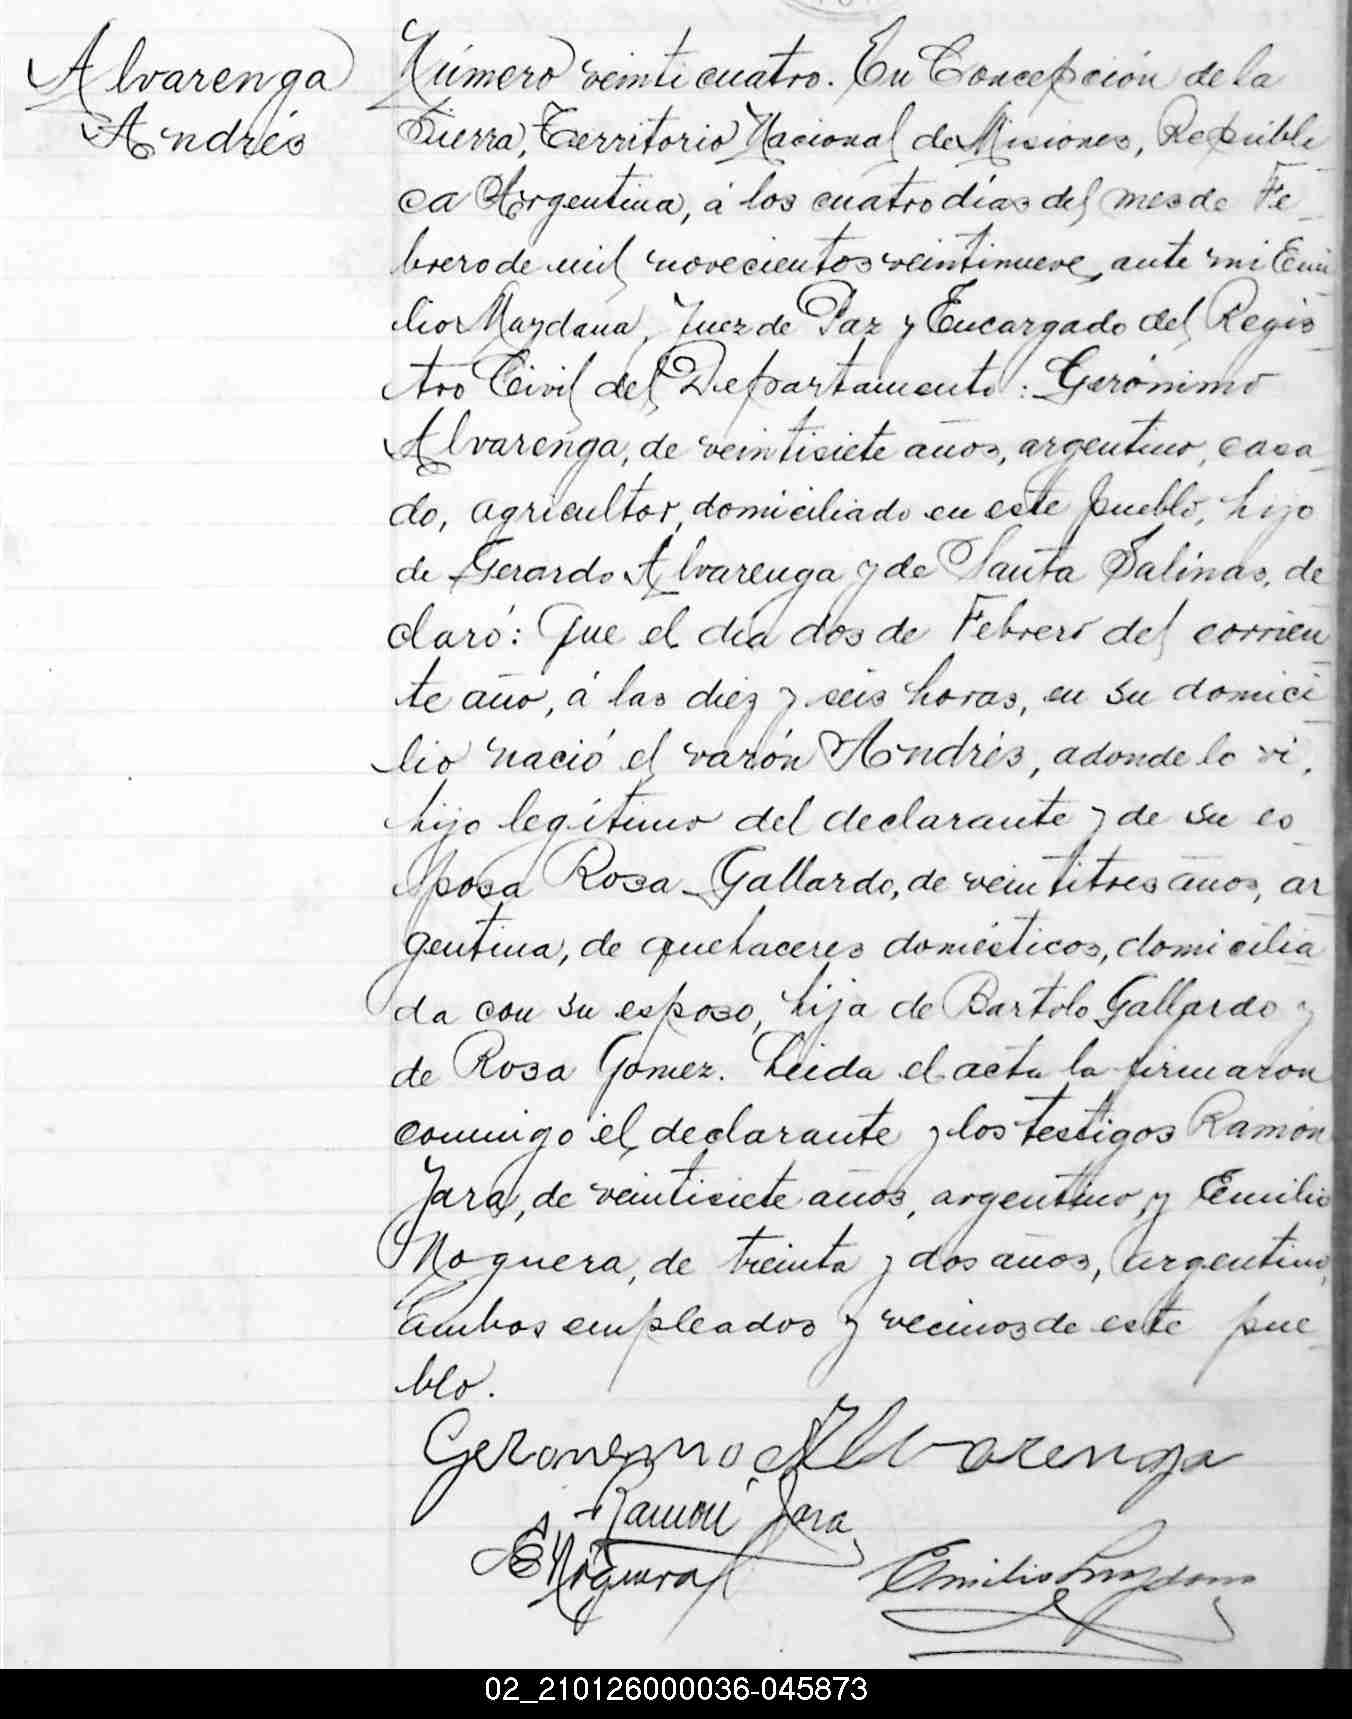 Alvarenga
Andrés
Número veinticuatro. En Concepción de la
Sierra, Territorio Nacional de Misiones, Repúbli
ca Argentina, á los cuatro días del mes de Fe-
brero de mil novecientos veintinueve, ante mi Emi
lio Maydana, Juez de Paz y Encargado del Regis-
tro Civil del Departamento: Gerónimo
Alvarenga, de veintisiete años, argentino, casa-
do, agricultor, domiciliado en este pueblo, hijo
de Gerardo Alvarenga y de Santa Salinas, de-
claró: Que el día dos de Febrero del corrien-
te año, á las diez y seis horas, en su domici-
lio nació el varón Andrés, adonde lo vi,
hijo legítimo del declarante y de su es-
posa Rosa Gallardo, de veintitres años, ar-
gentina, de quehaceres domésticos, domicilia-
da con su esposo, hija de Bartolo Gallardo y
de Rosa Gomez. Leida el acta la firmaron
conmigo el declarante y los testigos Ramón
Jara, de veintisiete años, argentino, y Emilio
Noguera, de treinta y dos años, argentino,
ambos empleados y vecinos de este pue-
blo.
Geronimo Alvarenga
Ramón Jara
E Noguera
Emilio Maydana
02_210126000036-045873